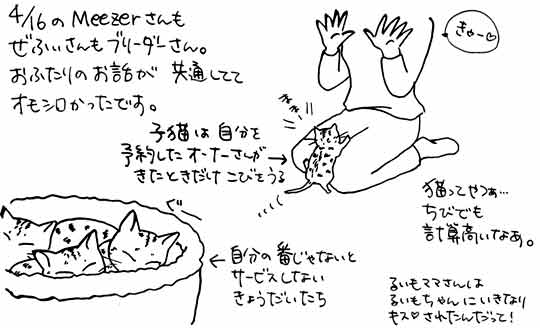 4/16のMeezerさんも
ぜふぃさんもブリーダーさん。
おふたりのお話が 共通してて
オモシロかったです。
きゃー♡
子猫は自分を
予約したオーナーさんが
きたときだけ こびをうる
猫ってやつぁ…
ちびでも
計算高いなあ。
自分の番じゃないと
サービスしない
きょうだいたち
るいもママさんは
るいもちゃんにいきなり
モス♡されたんだって!